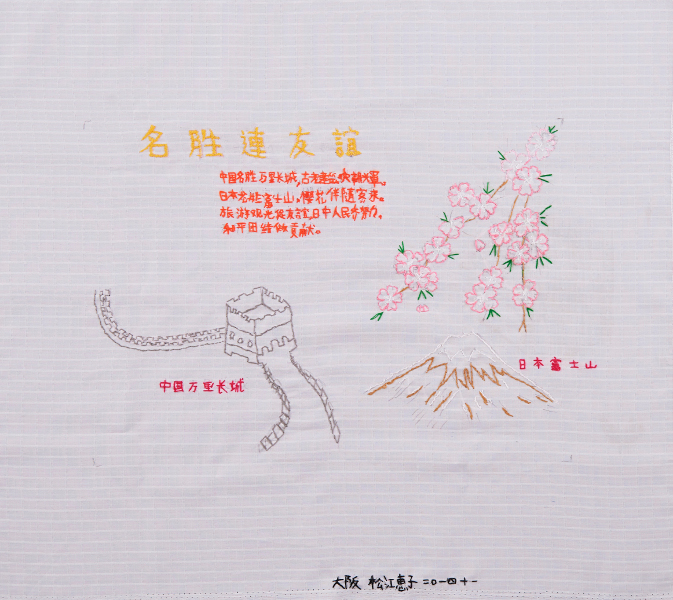 名胜連友誼
中国名胜万里长城,古老建筑
日本名胜富士山,樱花伴随客来。
旅游观光促友誼,日中人民齐努力,
和平团结做贡献。
中国万里长城
日本富士山
大阪 松江恵子 二〇一四十一